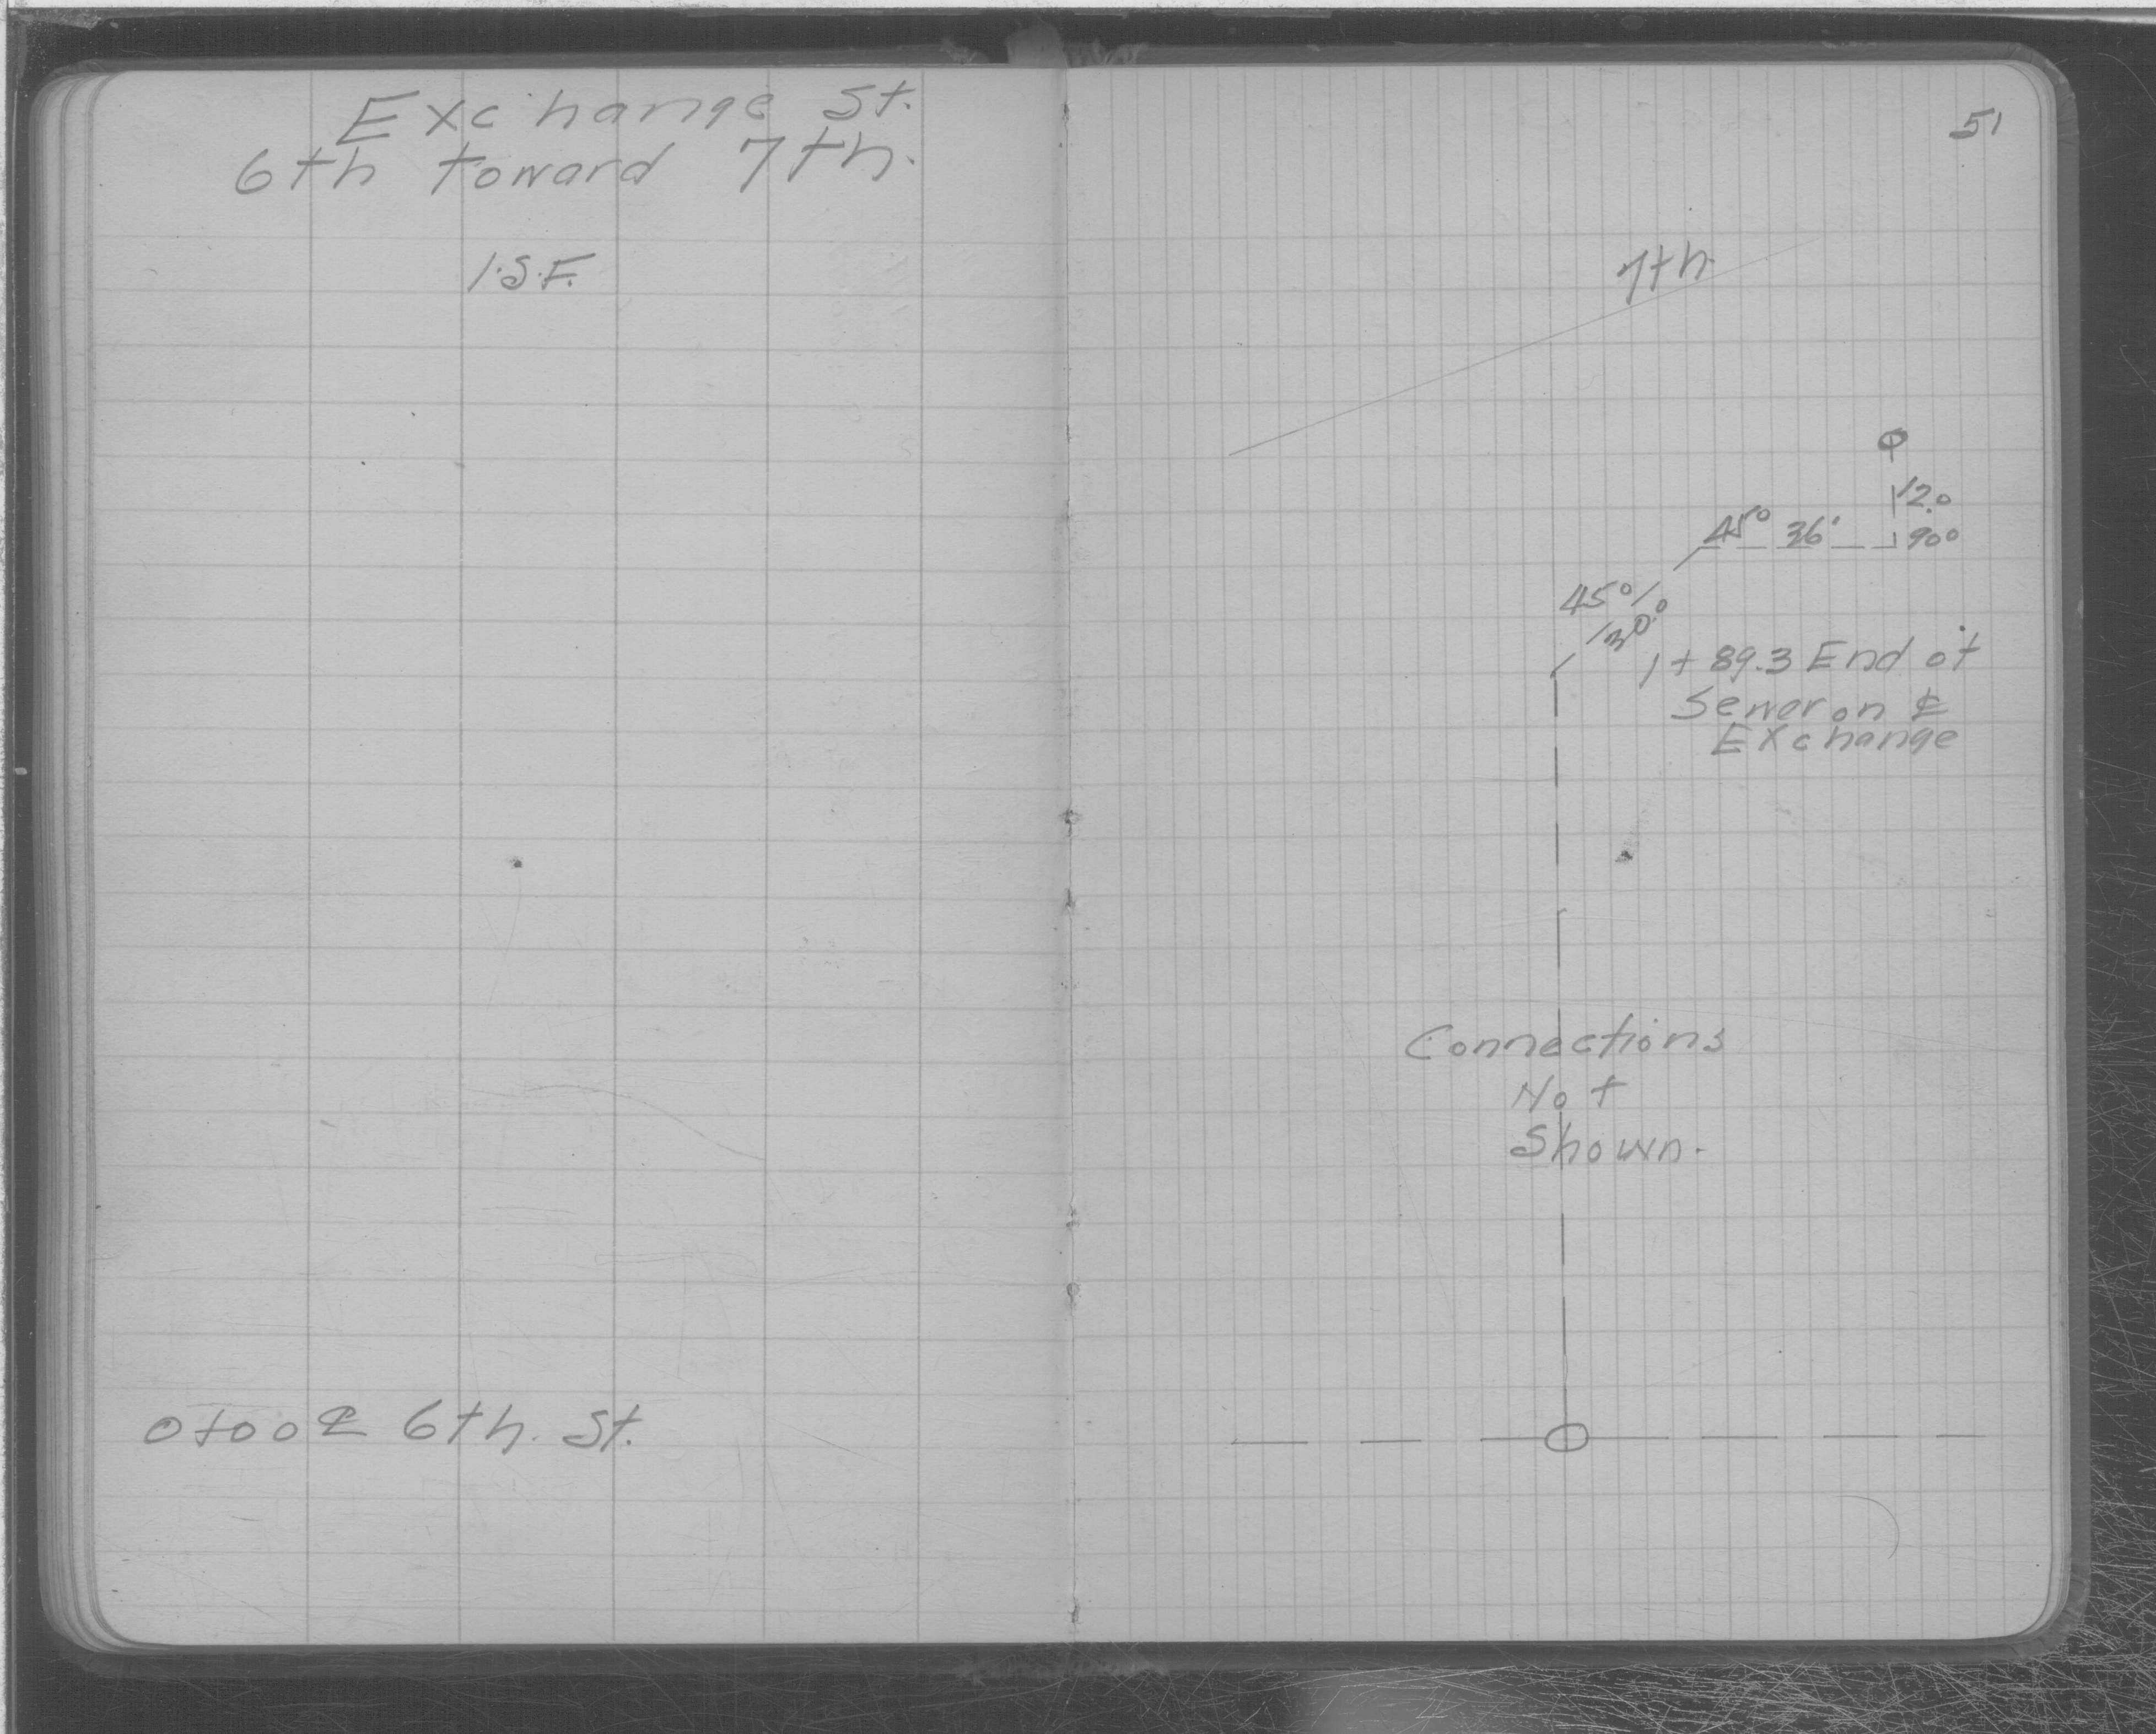 Exchange St.
6th toward 7th.
I.S.F.
0+00 ℄ 6th. St.
51
7th
12.0
45° 36'
90°
45°
30.0
1+89.3 End of
Sewer on ℄
Exchange
Connections
Not
Shown.